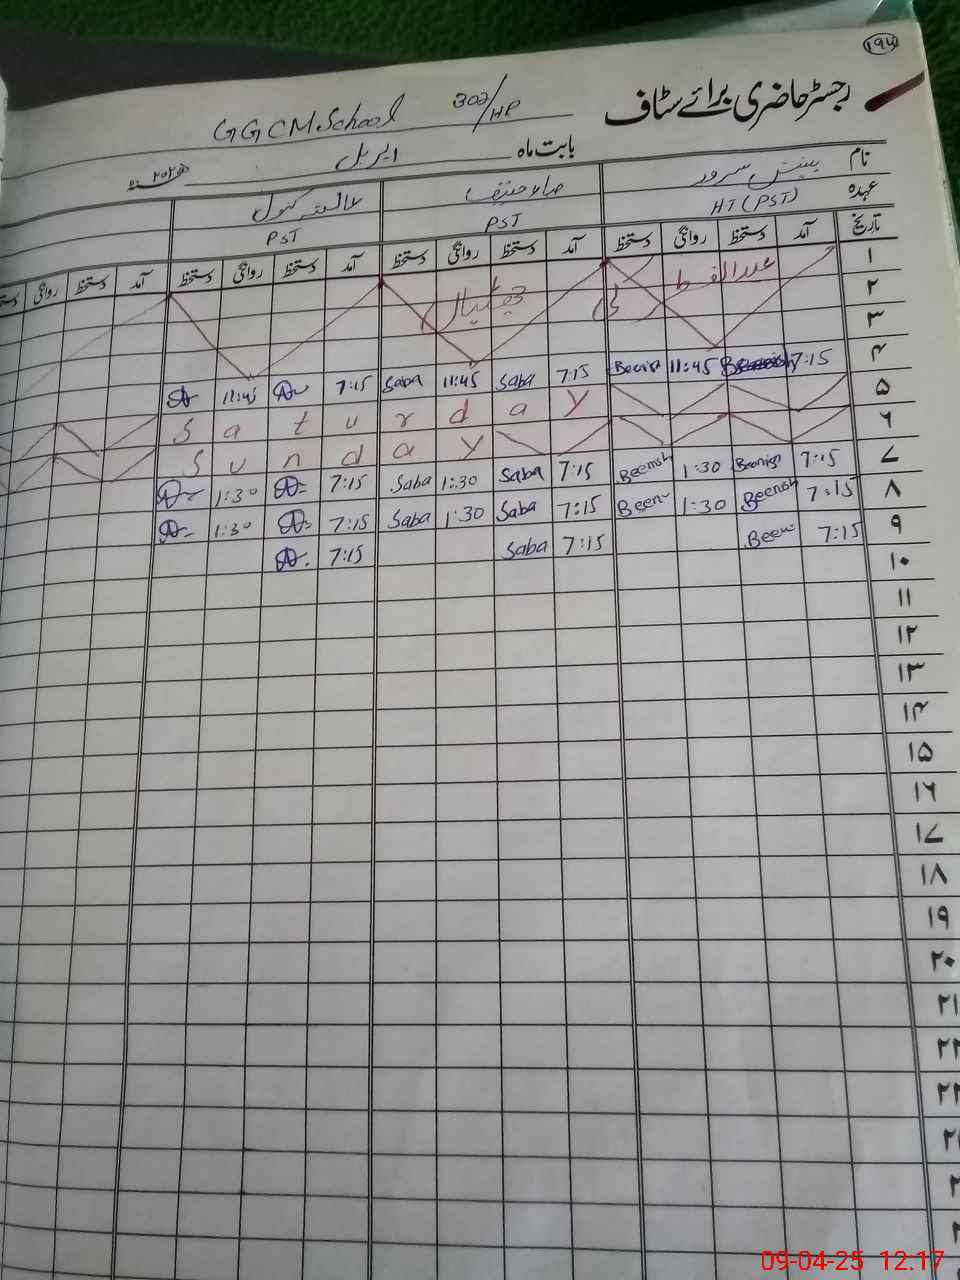 ۱۹۴
رجسٹر حاضری برائے سٹاف
GGCMSchool 302/HR
بابت ماہ اپریل ۲۰۲۵ء
نام بینش سرور صباء حنیف کنول
عہدہ HT (PST) PST PST
تاریخ آمد دستخط روانگی دستخط آمد دستخط روانگی دستخط آمد دستخط روانگی دستخط آمد دستخط روانگی
۱ عید الفطر کی چھٹیاں
۲
۳
۴ 7:15 11:45 Beenish 7:15 Saba 11:45 Saba 7:15 11:45
۵ Saturday
۶ Sunday
۷ 7:15 Beenish 1:30 Beenish 7:15 Saba 1:30 Saba 7:15 1:30
۸ 7:15 Beenish 1:30 Been 7:15 Saba 1:30 Saba 7:15 1:30
۹ 7:15 Been 7:15 Saba 7:15
۱۰
۱۱
۱۲
۱۳
۱۴
۱۵
۱۶
۱۷
۱۸
۱۹
۲۰
۲۱
۲۲
۲۳
09-04-25 12.17